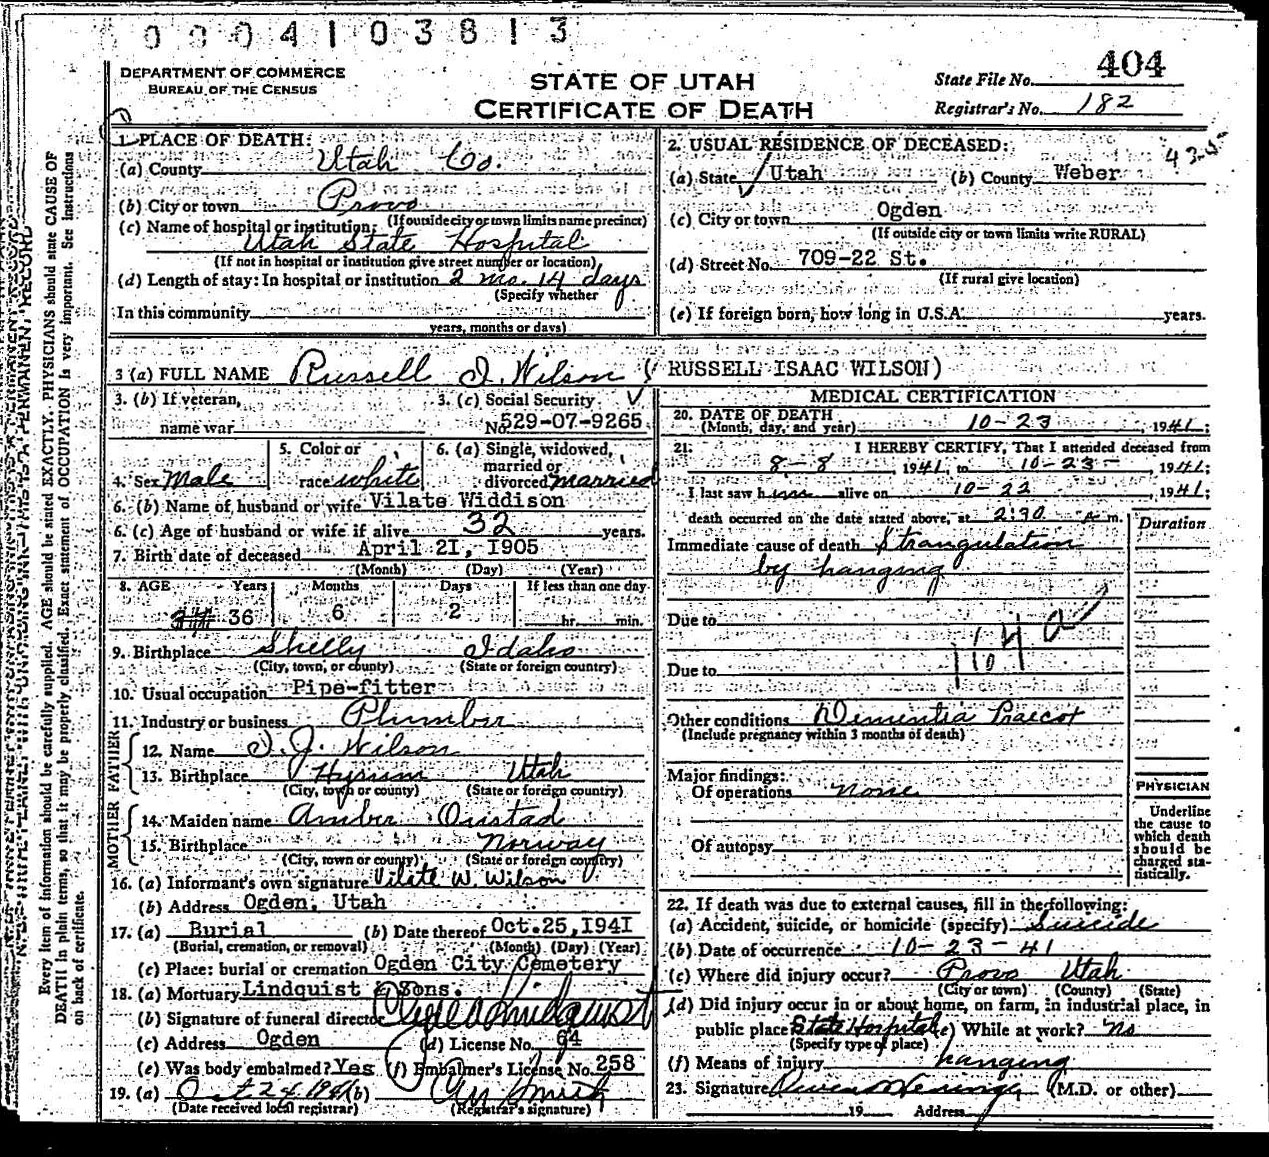 0 0 0 4 1 0 3 8 1 3
DEPARTMENT OF COMMERCE
BUREAU OF THE CENSUS
STATE OF UTAH
CERTIFICATE OF DEATH
State File No. 404
Registrar's No. 182
Every item of information should be carefully supplied. AGE should be stated EXACTLY. PHYSICIANS should state CAUSE OF
DEATH in plain terms, so that it may be properly classified. Exact statement of OCCUPATION is very important. See instructions
on back of certificate.
1. PLACE OF DEATH:
(a) County Utah Co.
(b) City or town Provo
(If outside city or town limits name precinct)
(c) Name of hospital or institution:
Utah State Hospital
(If not in hospital or institution give street number or location)
(d) Length of stay: In hospital or institution 2 mo. 14 days
(Specify whether
In this community
years, months or days)
2. USUAL RESIDENCE OF DECEASED:
(a) State Utah (b) County Weber
(c) City or town Ogden
(If outside city or town limits write RURAL)
(d) Street No. 709-22 St.
(If rural give location)
(e) If foreign born, how long in U.S.A. years.
3 (a) FULL NAME Russell I. Wilson (RUSSELL ISAAC WILSON)
3. (b) If veteran,
name war
3. (c) Social Security
No. 529-07-9265
4. Sex Male
5. Color or
race white
6. (a) Single, widowed,
married or
divorced married
6. (b) Name of husband or wife Vilate Widdison
6. (c) Age of husband or wife if alive 32 years.
7. Birth date of deceased April 21, 1905
(Month) (Day) (Year)
8. AGE Years Months Days If less than one day
36 6 2 hr. min.
9. Birthplace Shelly Idaho
(City, town, or county) (State or foreign country)
10. Usual occupation Pipe-fitter
11. Industry or business Plumber
FATHER
12. Name I. J. Wilson
13. Birthplace Hyrum Utah
(City, town or county) (State or foreign country)
MOTHER
14. Maiden name Amber Onstad
15. Birthplace Norway
(City, town or county) (State or foreign country)
16. (a) Informant's own signature Vilate W. Wilson
(b) Address Ogden, Utah
17. (a) Burial (b) Date thereof Oct.25,1941
(Burial, cremation, or removal) (Month) (Day) (Year)
(c) Place: burial or cremation Ogden City Cemetery
18. (a) Mortuary Lindquist & Sons.
(b) Signature of funeral director
(c) Address Ogden (d) License No. 64
(e) Was body embalmed? Yes (f) Embalmer's License No. 258
19. (a) Oct 24 1941 (b)
(Date received local registrar) (Registrar's signature)
MEDICAL CERTIFICATION
20. DATE OF DEATH
(Month, day, and year) 10-23, 1941;
21. I HEREBY CERTIFY, That I attended deceased from
8-8, 1941, to 10-23-, 1941;
I last saw him alive on 10-22, 1941;
death occurred on the date stated above, at 2:30 A m.
Duration
Immediate cause of death Strangulation
by hanging
Due to
Due to
Other conditions Dementia Praecox
(Include pregnancy within 3 months of death)
Major findings:
Of operations none
Of autopsy
PHYSICIAN
Underline
the cause to
which death
should be
charged sta-
tistically.
22. If death was due to external causes, fill in the following:
(a) Accident, suicide, or homicide (specify) Suicide
(b) Date of occurrence 10-23-41
(c) Where did injury occur? Provo Utah
(City or town) (County) (State)
(d) Did injury occur in or about home, on farm, in industrial place, in
public place State Hospital (e) While at work? no
(Specify type of place)
(f) Means of injury hanging
23. Signature (M.D. or other)
19 Address